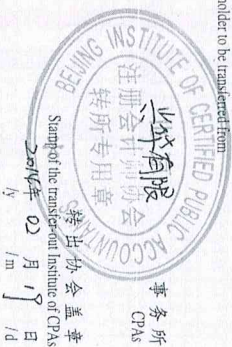 holder to be transferred from
BEIJING INSTITUTE OF CERTIFIED PUBLIC ACCOUNTANTS
注册会计师协会
转所专用章
事务所
CPAs
转出协会盖章
Stamp of the transfer-out Institute of CPAs
2014年 02 月 19 日
/y /m /d